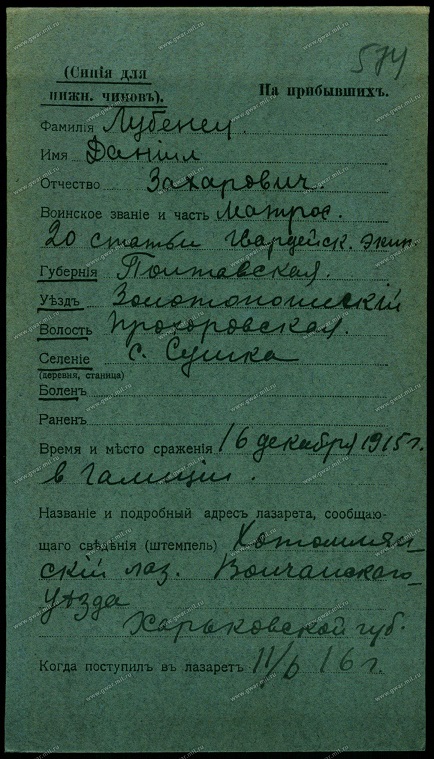 574
(Синія для
нижн. чиновъ).
На прибывшихъ.
Фамилія Лубенец
Имя Даніил
Отчество Захарович.
Воинское званіе и часть Матрос.
2о статьи Гвардейск. экип.
Губернія Полтавская.
Уѣздъ Золотоношскій
Волость Прохоровская.
Селеніе с. Сушка
(деревня, станица)
Боленъ
Раненъ
Время и мѣсто сраженія 16 декабря 1915 г.
в Галиціи.
Названіе и подробный адресъ лазарета, сообщаю-
щаго свѣдѣнія (штемпель) Хотомлян-
скій лаз. Волчанскаго
уѣзда
Харьковской губ.
Когда поступилъ въ лазаретъ 11/6 16 г.
www.gwar.mil.ru